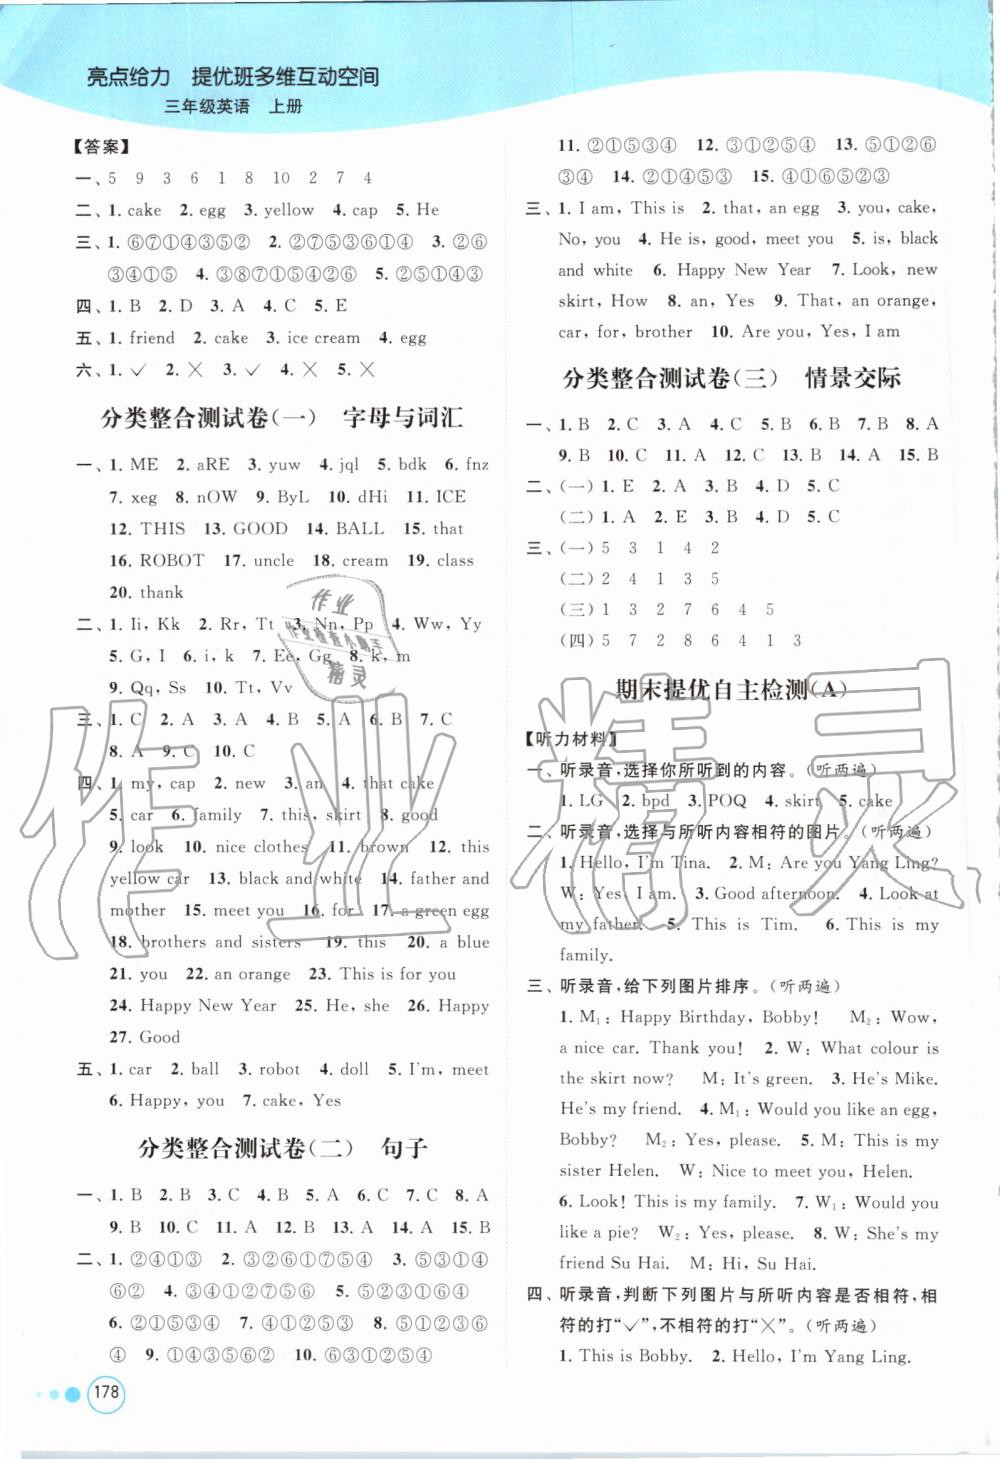 亮点给力 提优班多维互动空间
三年级英语 上册
【答案】
一、5 9 3 6 1 8 10 2 7 4
二、1. cake 2. egg 3. yellow 4. cap 5. He
三、1. ⑥⑦①④③⑤② 2. ②⑦⑤③⑥①④ 3. ②⑥
③④①⑤ 4. ③⑧⑦①⑤④②⑥ 5. ②⑤①④③
四、1. B 2. D 3. A 4. C 5. E
五、1. friend 2. cake 3. ice cream 4. egg
六、1. ✓ 2. ✕ 3. ✓ 4. ✕ 5. ✕
分类整合测试卷(一) 字母与词汇
一、1. ME 2. aRE 3. yuw 4. jql 5. bdk 6. fnz
7. xeg 8. nOW 9. ByL 10. dHi 11. ICE
12. THIS 13. GOOD 14. BALL 15. that
16. ROBOT 17. uncle 18. cream 19. class
20. thank
二、1. Ii, Kk 2. Rr, Tt 3. Nn, Pp 4. Ww, Yy
5. G, I 6. i, k 7. Ee, Gg 8. k, m
9. Qq, Ss 10. Tt, Vv
三、1. C 2. A 3. A 4. B 5. A 6. B 7. C
8. A 9. C 10. C
四、1. my, cap 2. new 3. an 4. that cake
5. car 6. family 7. this, skirt 8. good
9. look 10. nice clothes 11. brown 12. this
yellow car 13. black and white 14. father and
mother 15. meet you 16. for 17. a green egg
18. brothers and sisters 19. this 20. a blue
21. you 22. an orange 23. This is for you
24. Happy New Year 25. He, she 26. Happy
27. Good
五、1. car 2. ball 3. robot 4. doll 5. I'm, meet
6. Happy, you 7. cake, Yes
分类整合测试卷(二) 句子
一、1. B 2. B 3. C 4. B 5. B 6. C 7. C 8. A
9. B 10. C 11. A 12. A 13. A 14. A 15. B
二、1. ②④①③ 2. ③②⑥①⑦⑤④ 3. ⑤③①④
⑥② 4. ③④①②⑦⑤ 5. ③②①⑤⑥④
6. ②①⑤③④ 7. ④①②⑤③ 8. ⑤①②③⑥
④ 9. ①④③⑤⑥② 10. ⑥③①②⑤④
178
11. ②①⑤③④ 12. ③①②⑤④ 13. ⑤①②⑥
③④ 14. ②①④⑤③ 15. ④①⑥⑤②③
三、1. I am, This is 2. that, an egg 3. you, cake,
No, you 4. He is, good, meet you 5. is, black
and white 6. Happy New Year 7. Look, new
skirt, How 8. an, Yes 9. That, an orange,
car, for, brother 10. Are you, Yes, I am
分类整合测试卷(三) 情景交际
一、1. B 2. C 3. A 4. C 5. B 6. B 7. B 8. A
9. B 10. C 11. A 12. C 13. B 14. A 15. B
二、(一) 1. E 2. A 3. B 4. D 5. C
(二) 1. A 2. E 3. B 4. D 5. C
三、(一) 5 3 1 4 2
(二) 2 4 1 3 5
(三) 1 3 2 7 6 4 5
(四) 5 7 2 8 6 4 1 3
期末提优自主检测(A)
【听力材料】
一、听录音,选择你所听到的内容。(听两遍)
1. LG 2. bpd 3. POQ 4. skirt 5. cake
二、听录音,选择与所听内容相符的图片。(听两遍)
1. Hello, I'm Tina. 2. M: Are you Yang Ling?
W: Yes, I am. 3. Good afternoon. 4. Look at
my father. 5. This is Tim. 6. This is my
family.
三、听录音,给下列图片排序。(听两遍)
1. M₁: Happy Birthday, Bobby! M₂: Wow,
a nice car. Thank you! 2. W: What colour is
the skirt now? M: It's green. 3. He's Mike.
He's my friend. 4. M₁: Would you like an egg,
Bobby? M₂: Yes, please. 5. M: This is my
sister Helen. W: Nice to meet you, Helen.
6. Look! This is my family. 7. W₁: Would you
like a pie? W₂: Yes, please. 8. W: She's my
friend Su Hai. M: Hi, Su Hai.
四、听录音,判断下列图片与所听内容是否相符,相
符的打“✓”,不相符的打“✕”。(听两遍)
1. This is Bobby. 2. Hello, I'm Yang Ling.
作业
作业检查小助手
精灵
作业精灵